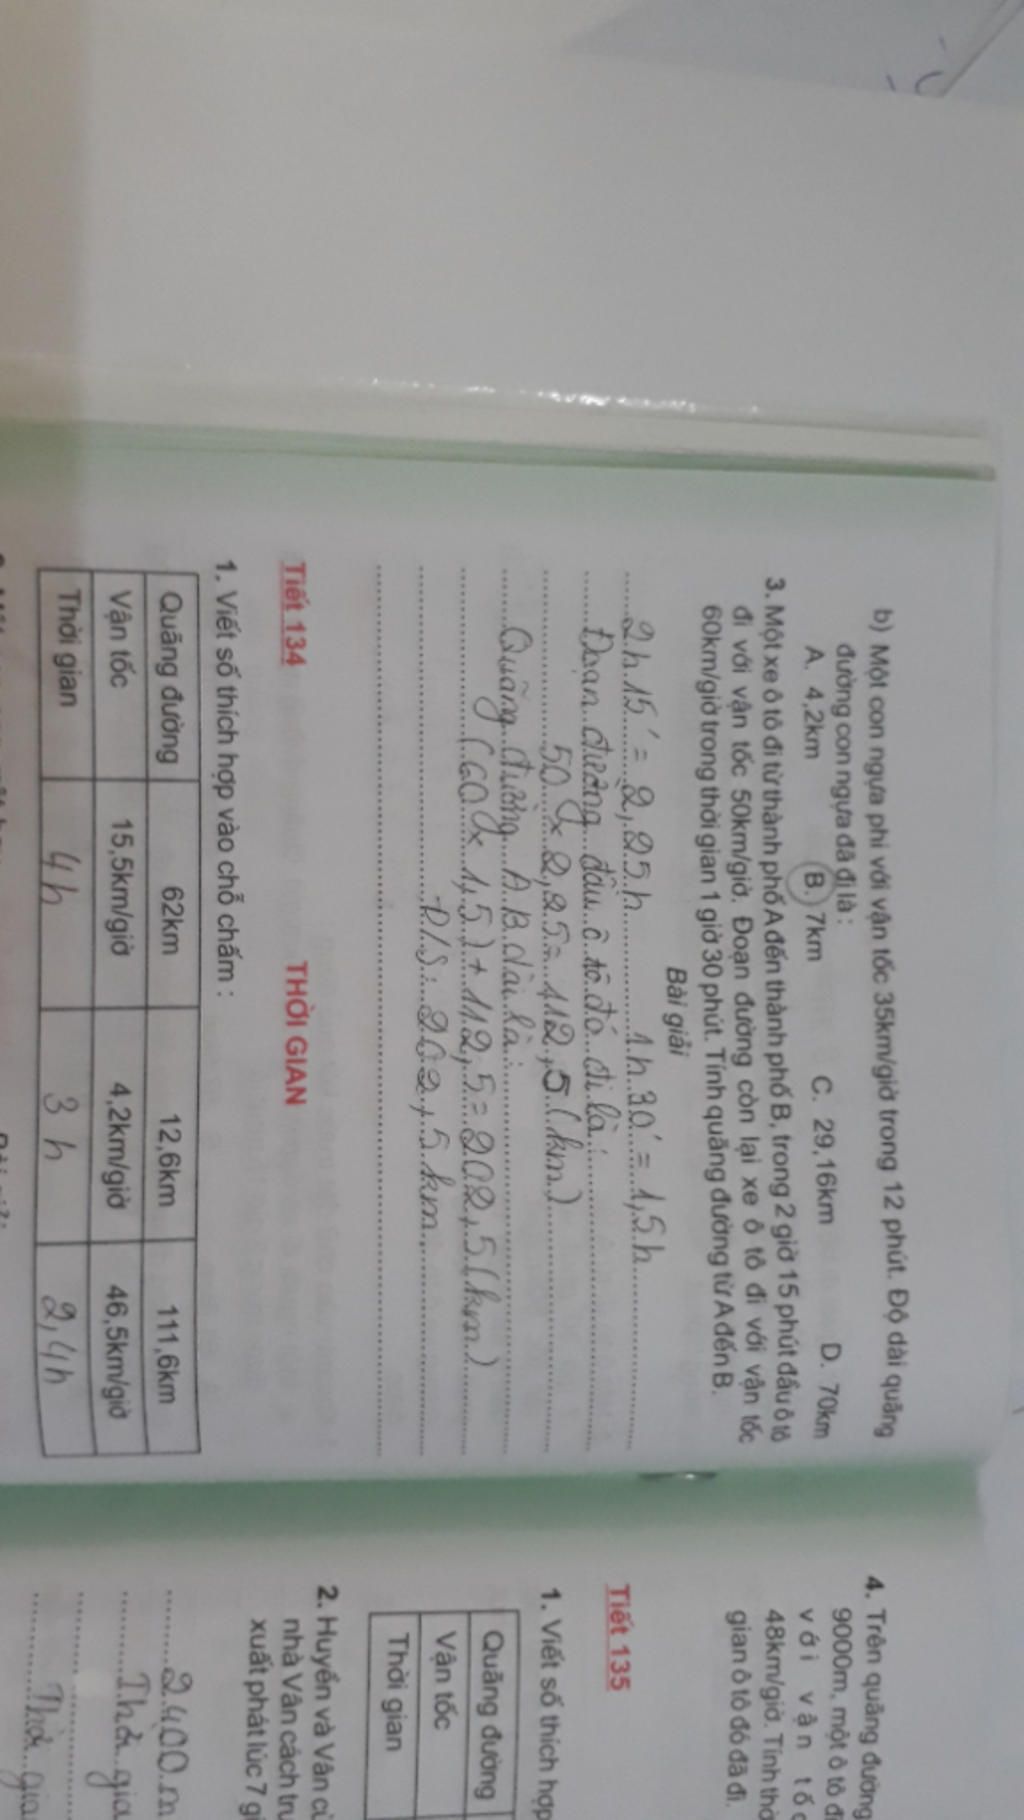 b) Một con ngựa phi với vận tốc 35km/giờ trong 12 phút. Độ dài quãng
đường con ngựa đã đi là :
A. 4,2km B. 7km C. 29,16km D. 70km
3. Một xe ô tô đi từ thành phố A đến thành phố B, trong 2 giờ 15 phút đầu ô tô
đi với vận tốc 50km/giờ. Đoạn đường còn lại xe ô tô đi với vận tốc
60km/giờ trong thời gian 1 giờ 30 phút. Tính quãng đường từ A đến B.
Bài giải
2h 15' = 2,25h 1h 30' = 1,5h
Đoạn đường đầu ô tô đó đi là:
50 x 2,25 = 112,5 (km)
Quãng đường AB dài là:
(60 x 1,5) + 112,5 = 202,5 (km)
Đ/S: 202,5 km.
Tiết 134 THỜI GIAN
1. Viết số thích hợp vào chỗ chấm :
Quãng đường 62km 12,6km 111,6km
Vận tốc 15,5km/giờ 4,2km/giờ 46,5km/giờ
Thời gian 4h 3h 2,4h
4. Trên quãng đường
9000m, một ô tô đi
với vận tốc
48km/giờ. Tính thờ
gian ô tô đó đã đi.
Tiết 135
1. Viết số thích hợp
Quãng đường
Vận tốc
Thời gian
2. Huyền và Vân cù
nhà Vân cách trư
xuất phát lúc 7 gi
2400m
Thời gia
Thời gia